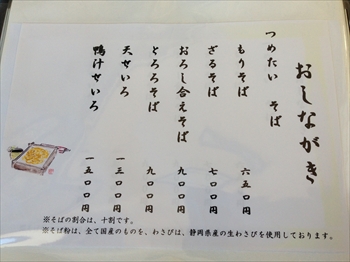 おしながき
つめたい そば
もりそば 六五〇円
ざるそば 七〇〇円
おろし合えそば 九〇〇円
とろろそば 九〇〇円
天せいろ 一三〇〇円
鴨汁せいろ 一五〇〇円
※そばの割合は、十割です。
※そば粉は、全て国産のものを、わさびは、静岡県産の生わさびを使用しております。